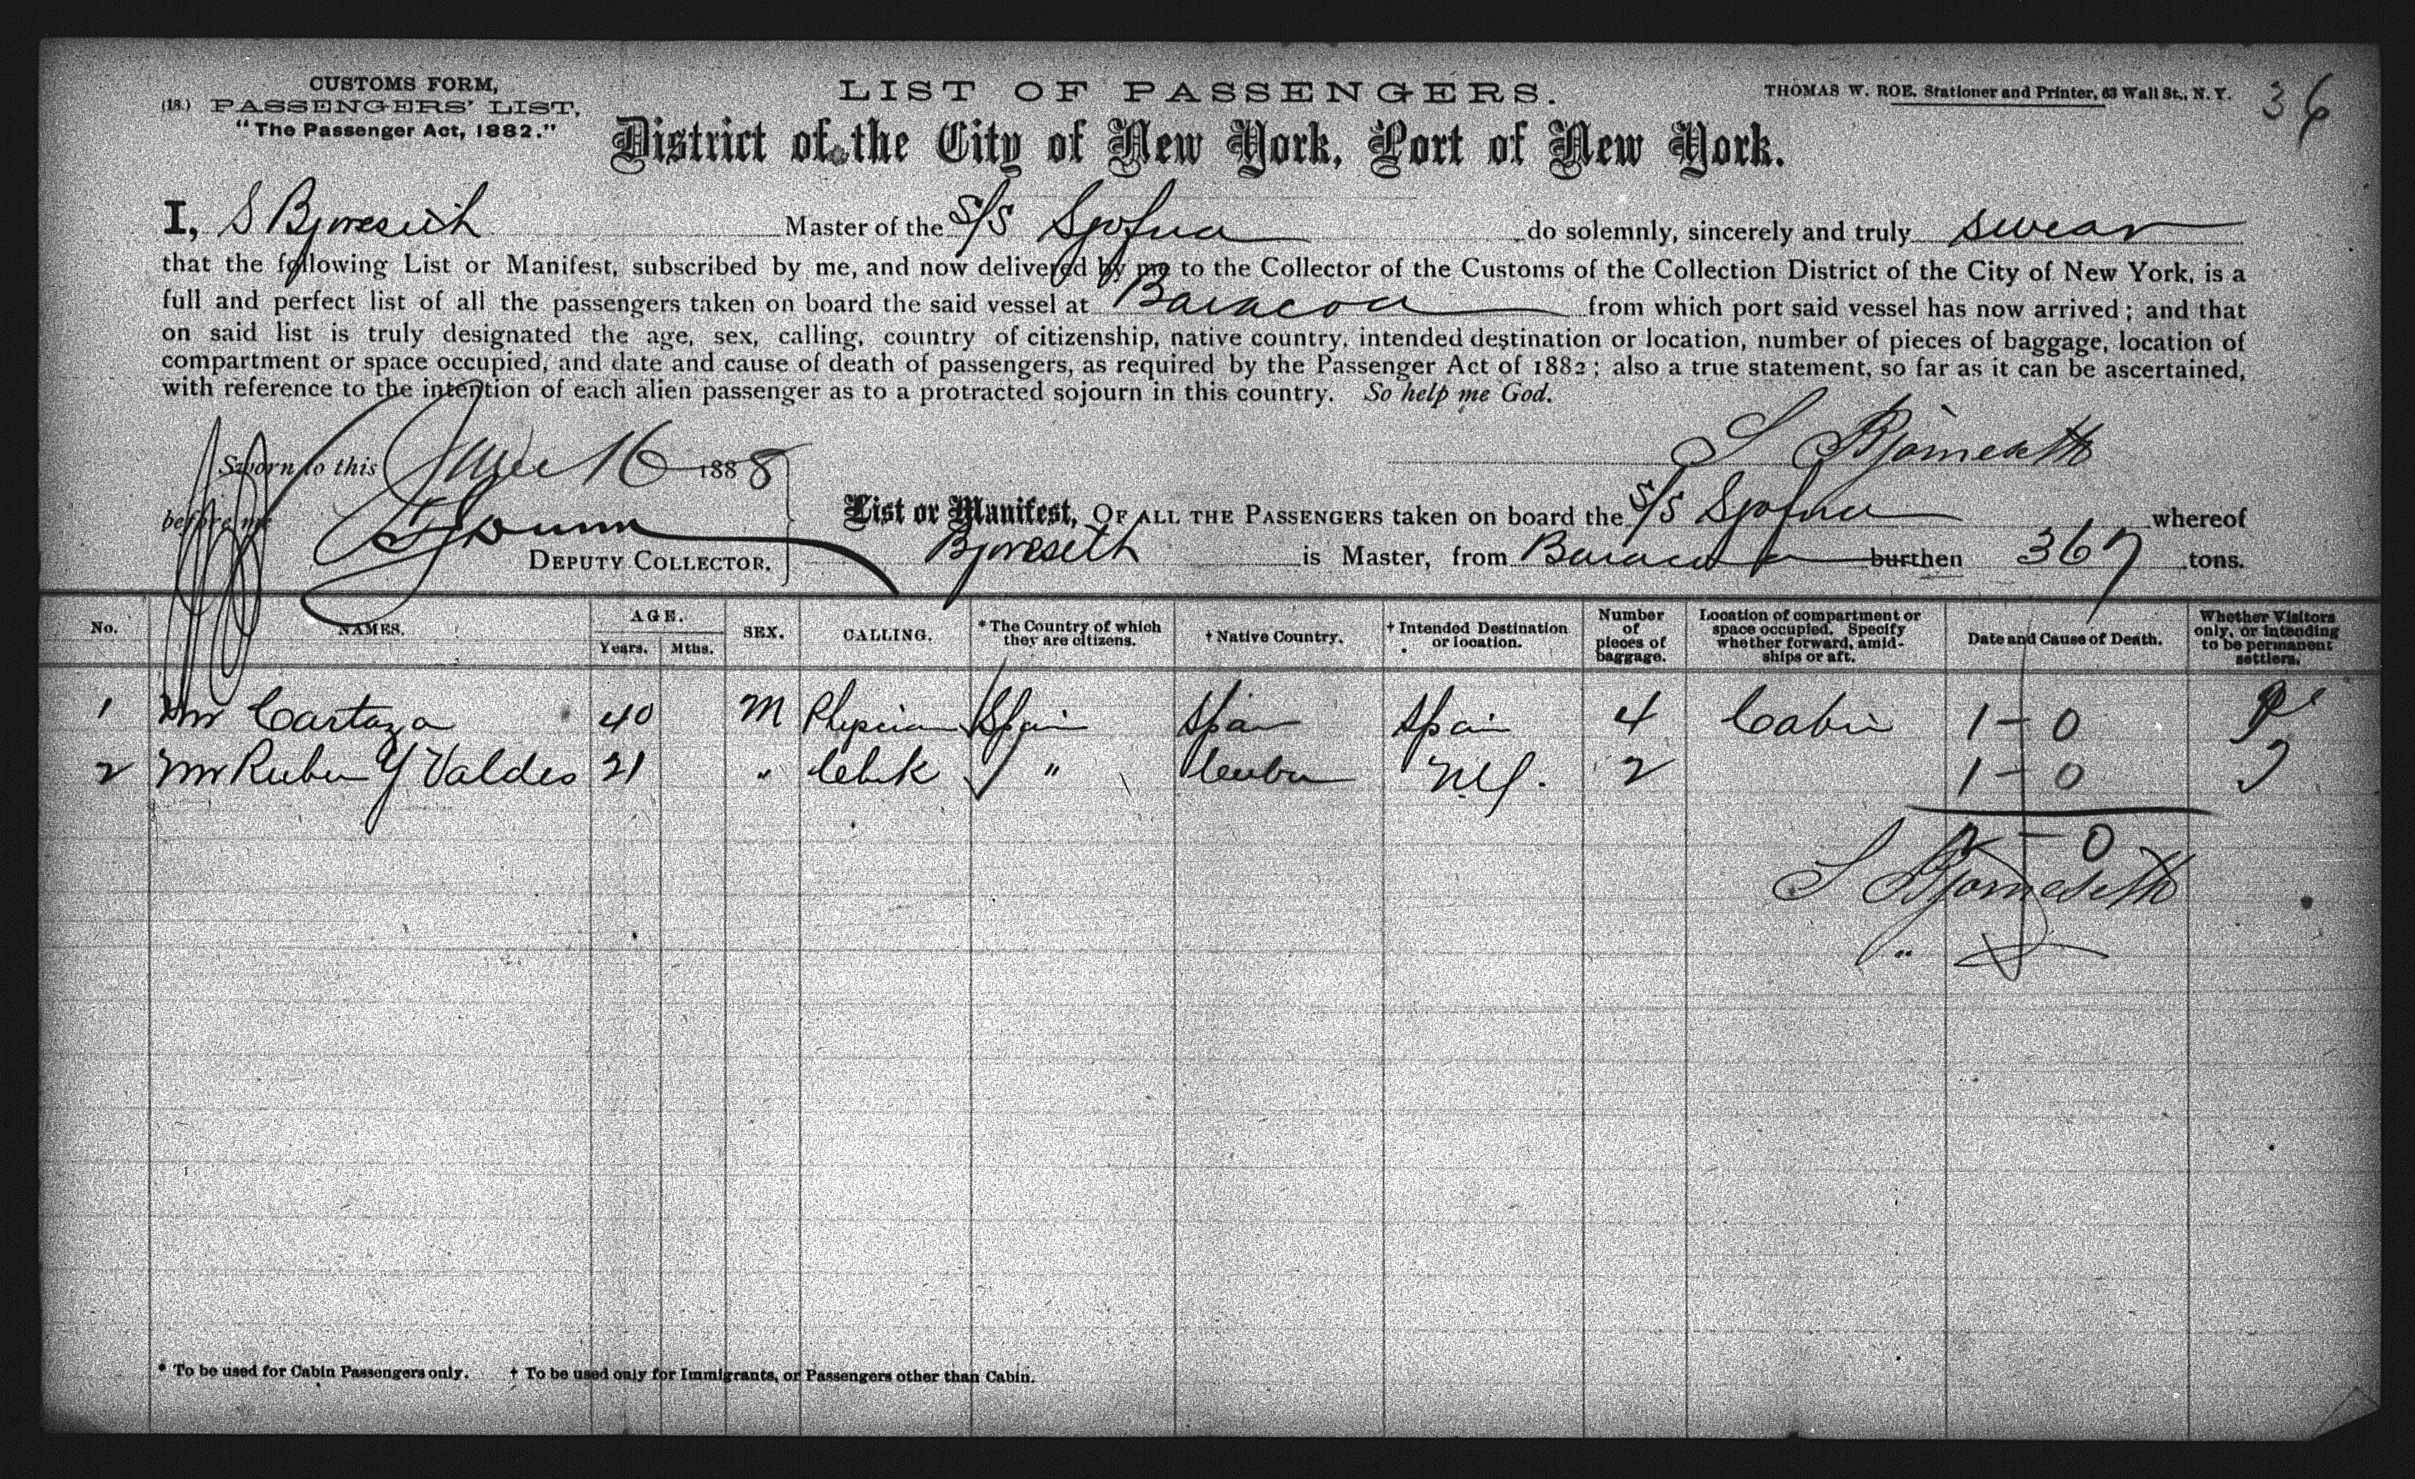 CUSTOMS FORM,
(18.) PASSENGERS' LIST,
"The Passenger Act, 1882."
LIST OF PASSENGERS.
THOMAS W. ROE, Stationer and Printer, 63 Wall St., N. Y.
36
District of the City of New York, Port of New York.
I, S Bjorneseth Master of the S/S Sjofna do solemnly, sincerely and truly swear
that the following List or Manifest, subscribed by me, and now delivered by me to the Collector of the Customs of the Collection District of the City of New York, is a
full and perfect list of all the passengers taken on board the said vessel at Baracoa from which port said vessel has now arrived; and that
on said list is truly designated the age, sex, calling, country of citizenship, native country, intended destination or location, number of pieces of baggage, location of
compartment or space occupied, and date and cause of death of passengers, as required by the Passenger Act of 1882; also a true statement, so far as it can be ascertained,
with reference to the intention of each alien passenger as to a protracted sojourn in this country. So help me God.
Sworn to this June 16 1888
S Bjorneseth
before me
DEPUTY COLLECTOR.
List or Manifest, OF ALL THE PASSENGERS taken on board the S/S Sjofna whereof
Bjorneseth is Master, from Baracoa burthen 367 tons.
No. NAMES. AGE. Years. Mths. SEX. CALLING. * The Country of which they are citizens. † Native Country. † Intended Destination or location. Number of pieces of baggage. Location of compartment or space occupied. Specify whether forward, amidships or aft. Date and Cause of Death. Whether Visitors only, or intending to be permanent settlers.
1 Mr Cartaza 40 M Physician Spain Spain Spain 4 Cabin 1 - 0
2 Mr Ruben Y Valdes 21 " Clerk " Cuba N.Y. 2 1 - 0
2 - 0
S Bjorneseth
"
* To be used for Cabin Passengers only. † To be used only for Immigrants, or Passengers other than Cabin.